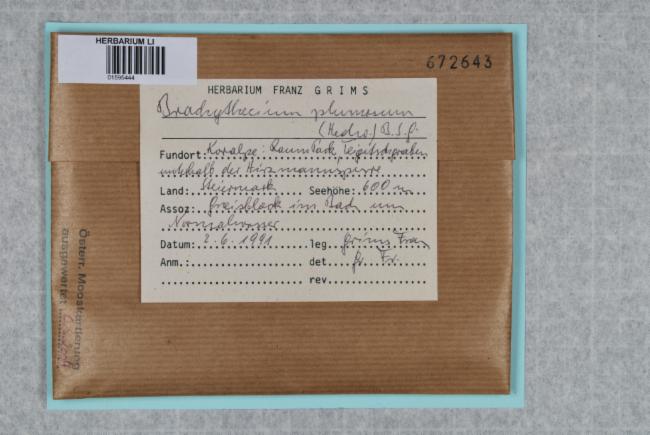 HERBARIUM LI
01595444
672643
HERBARIUM FRANZ GRIMS
Brachythecium plumosum
(Hedw.) B.S.G.
Fundort: Koralpe:
unterhalb der
Land: Steiermark Seehöhe: 600 m
Assoz: Gneisblock im Bach um
Normalwasser
Datum: 2.6.1991 leg. Grims Franz
Anm.: det Gr. Fr.
rev
Österr. Mooskartierung
ausgewertet